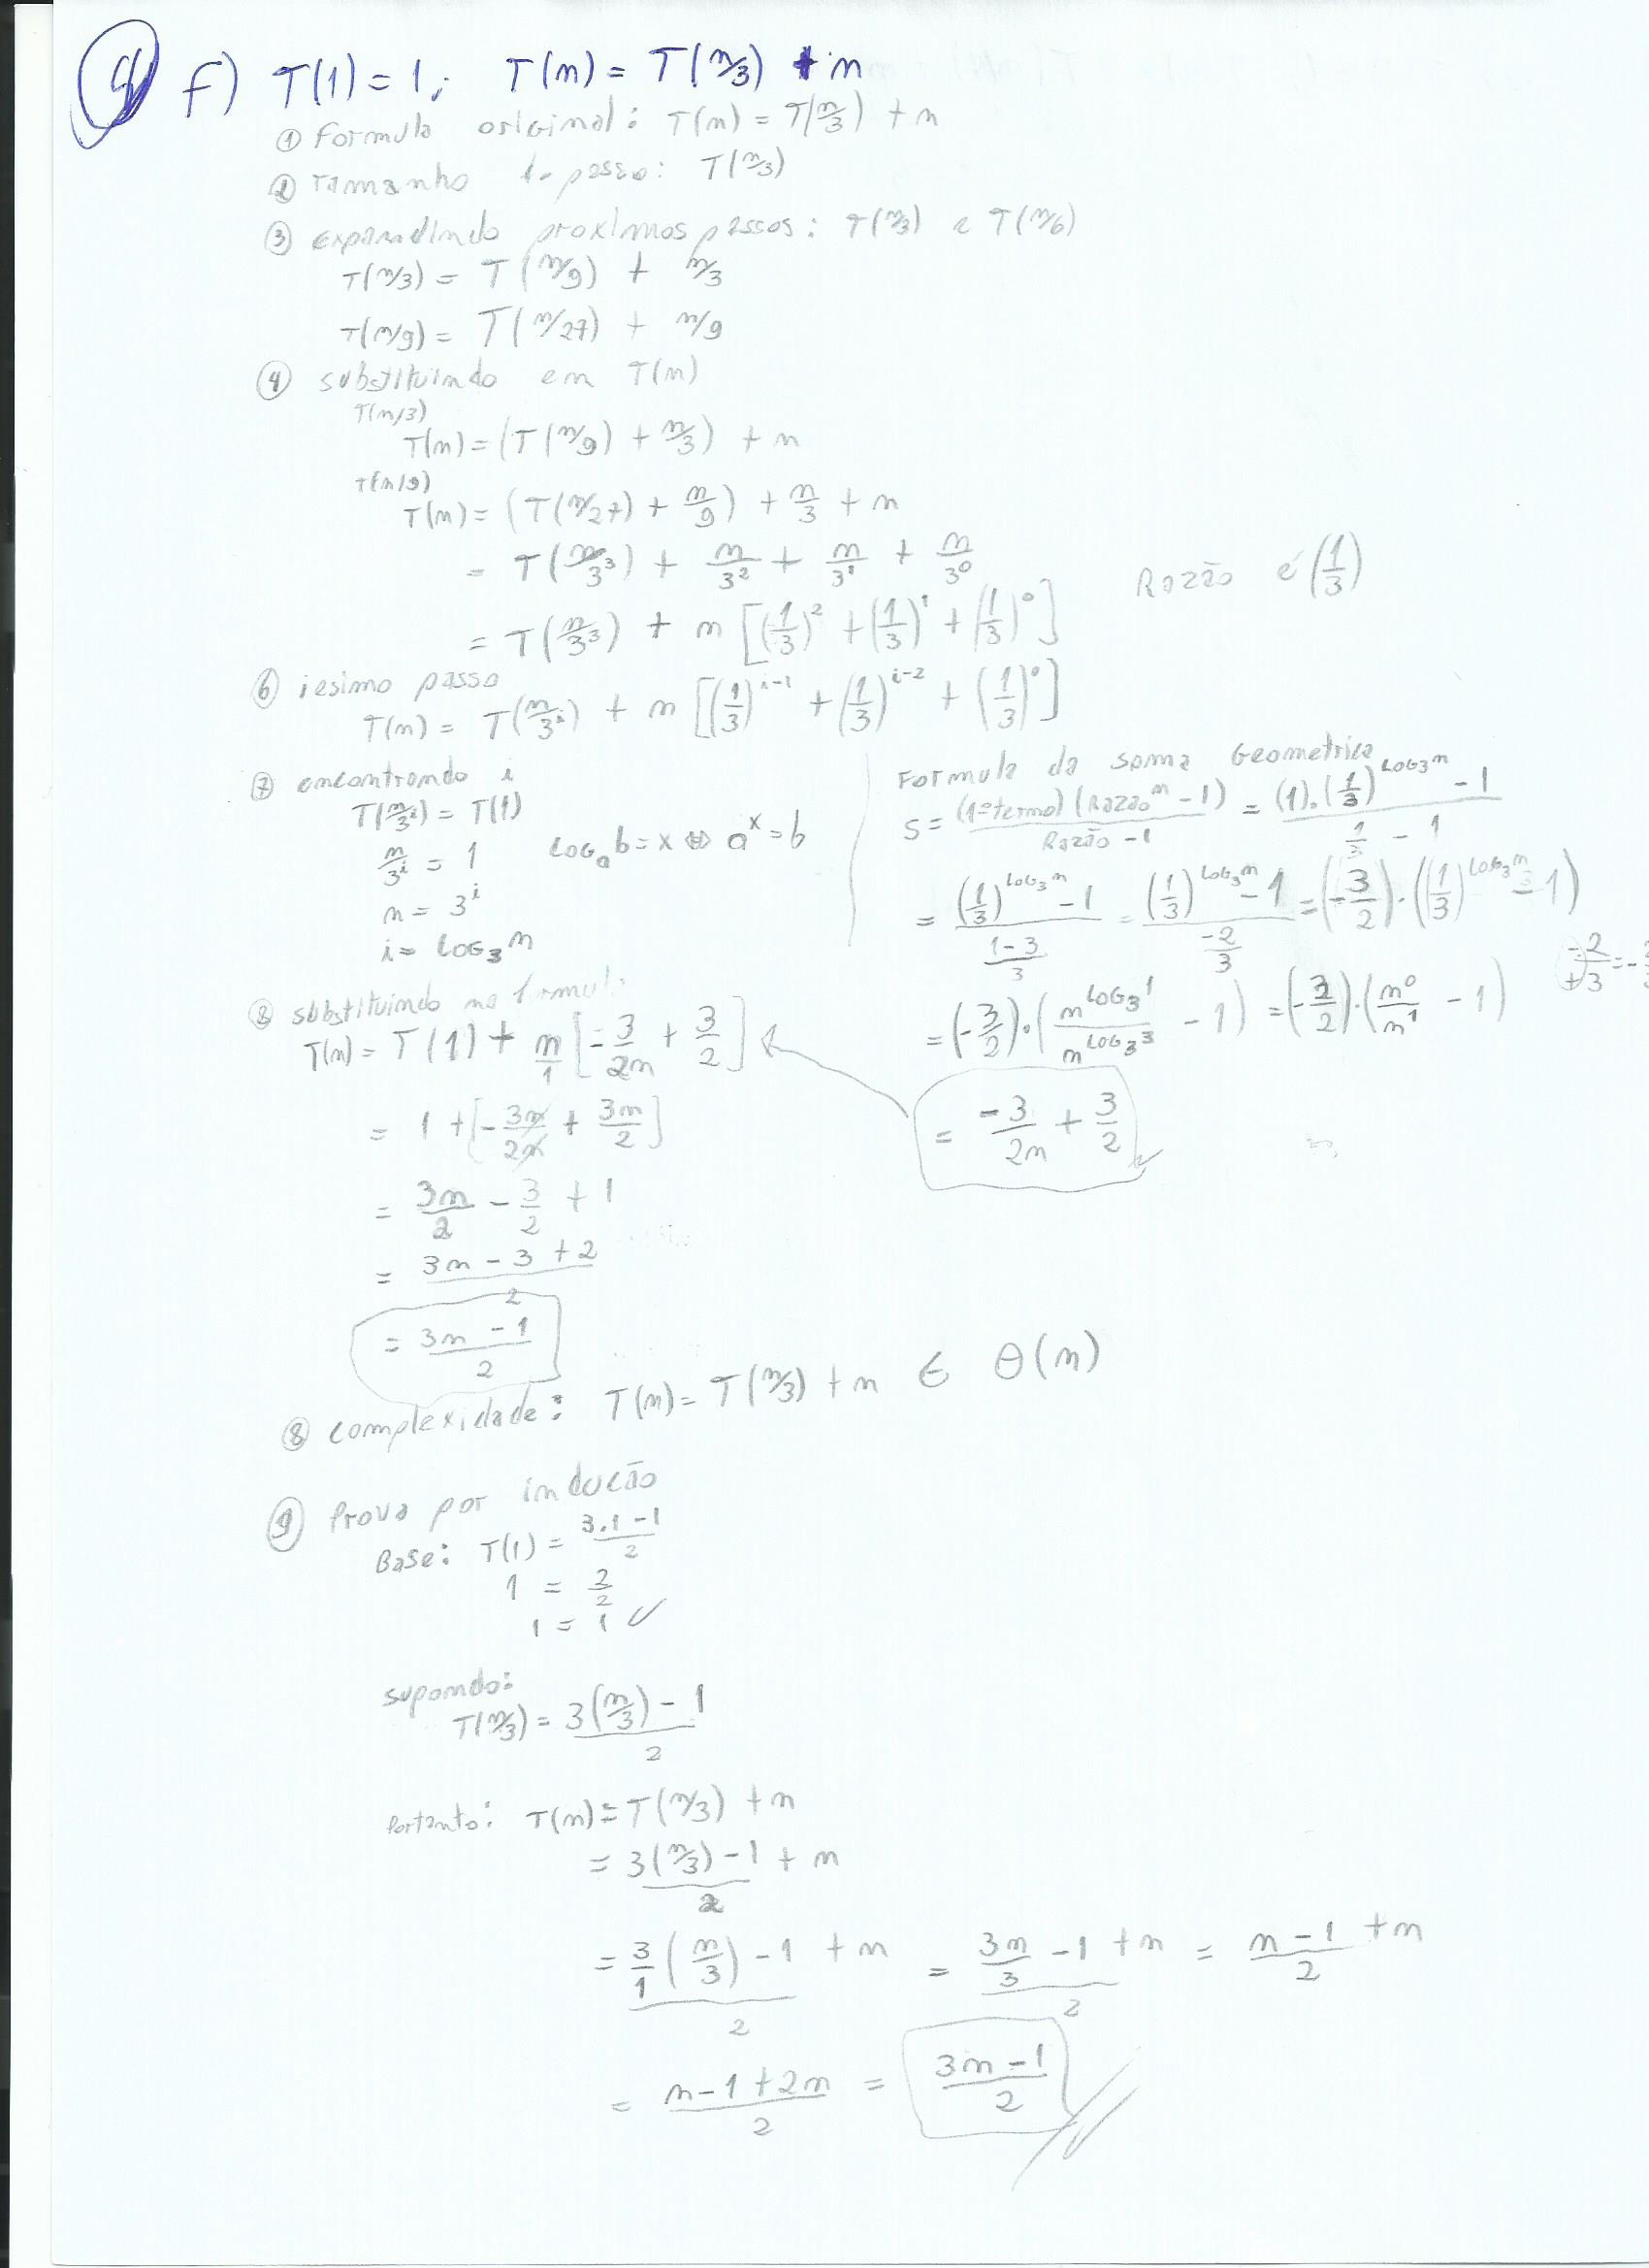 f) T(1) = 1; T(n) = T(n/3) + n
① Formula original: T(n) = T(n/3) + n
② Tamanho do passo: T(n/3)
③ expandindo proximos passos: T(n/3) e T(n/6)
T(n/3) = T(n/9) + n/3
T(n/9) = T(n/27) + n/9
④ substituindo em T(n)
T(n/3)
T(n) = (T(n/9) + n/3) + n
T(n/9)
T(n) = (T(n/27) + n/9) + n/3 + n
= T(n/3³) + n/3² + n/3¹ + n/3⁰
Razão é (1/3)
= T(n/3³) + n [(1/3)² + (1/3)¹ + (1/3)⁰]
⑥ iesimo passo
T(n) = T(n/3^i) + n [(1/3)^(i-1) + (1/3)^(i-2) + (1/3)⁰]
⑦ encontrando i
T(n/3^i) = T(1)
n/3^i = 1
log_a b = x ⇔ a^x = b
n = 3^i
i = log₃ n
Formula da soma Geometrica
S = (1º termo)(Razão^n - 1) / (Razão - 1) = ((1).(1/3)^(log₃ n) - 1) / (1/3 - 1)
= ((1/3)^(log₃ n) - 1) / ((1-3)/3) = ((1/3)^(log₃ n) - 1) / (-2/3) = (-3/2).((1/3)^(log₃ n) - 1)
= (-3/2).(n^(log₃ 1) / n^(log₃ 3) - 1) = (-3/2).(n⁰/n¹ - 1)
= -3/2n + 3/2
⑧ substituindo na formula
T(n) = T(1) + n/1 [-3/2n + 3/2]
= 1 + [-3n/2n + 3n/2]
= 3n/2 - 3/2 + 1
= (3n - 3 + 2)/2
= (3n - 1)/2
⑧ complexidade: T(n) = T(n/3) + n ∈ Θ(n)
⑨ Prova por indução
Base: T(1) = (3.1 - 1)/2
1 = 2/2
1 = 1 ✓
supondo:
T(n/3) = (3(n/3) - 1)/2
Portanto: T(n) = T(n/3) + n
= (3(n/3) - 1)/2 + n
= (3/1 (n/3) - 1)/2 + n = (3n/3 - 1)/2 + n = (n - 1)/2 + n
= (n - 1 + 2n)/2 = (3n - 1)/2